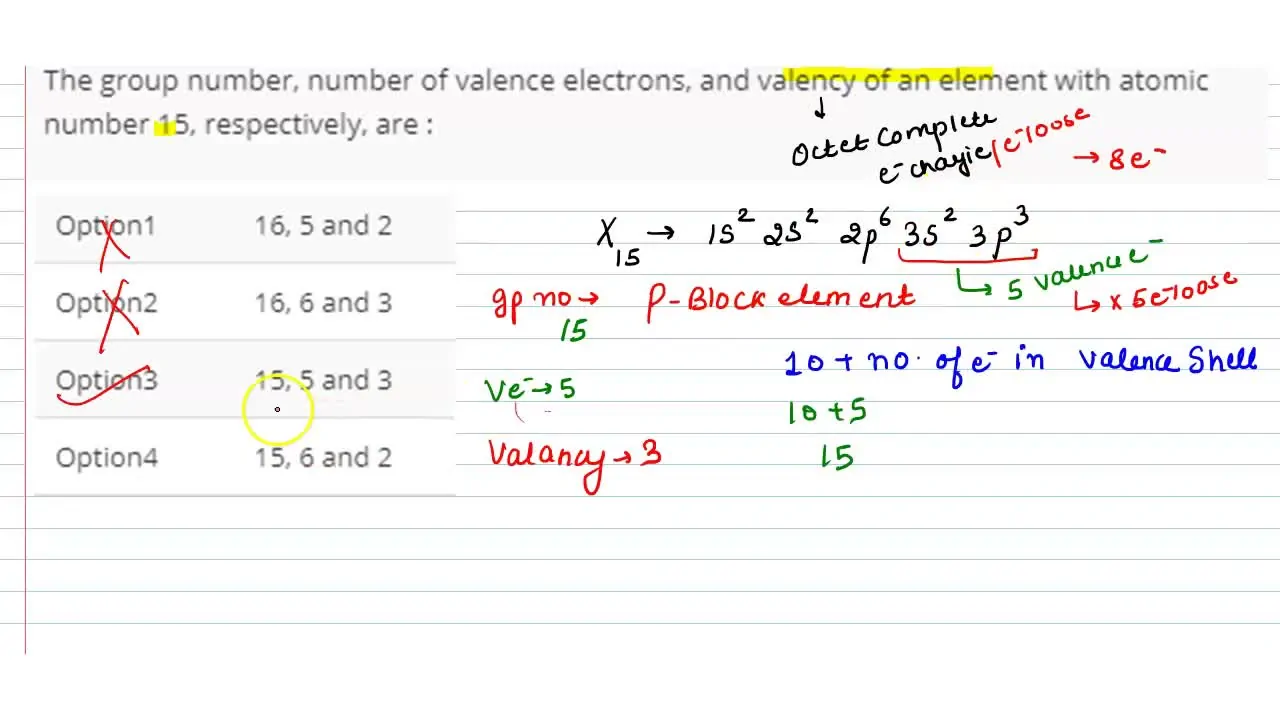 The group number, number of valence electrons, and valency of an element with atomic
number 15, respectively, are :
Octet Complete
e⁻ chargie/e⁻loose
→ 8e⁻
Option1 16, 5 and 2
X₁₅ → 1s² 2s² 2p⁶ 3s² 3p³
↳ 5 valence e⁻
Option2 16, 6 and 3
gp no → P-Block element
↳ x 5e⁻loose
15
Option3 15, 5 and 3
10 + no. of e⁻ in valence Shell
Ve⁻ → 5
10 + 5
Option4 15, 6 and 2
Valancy → 3
15